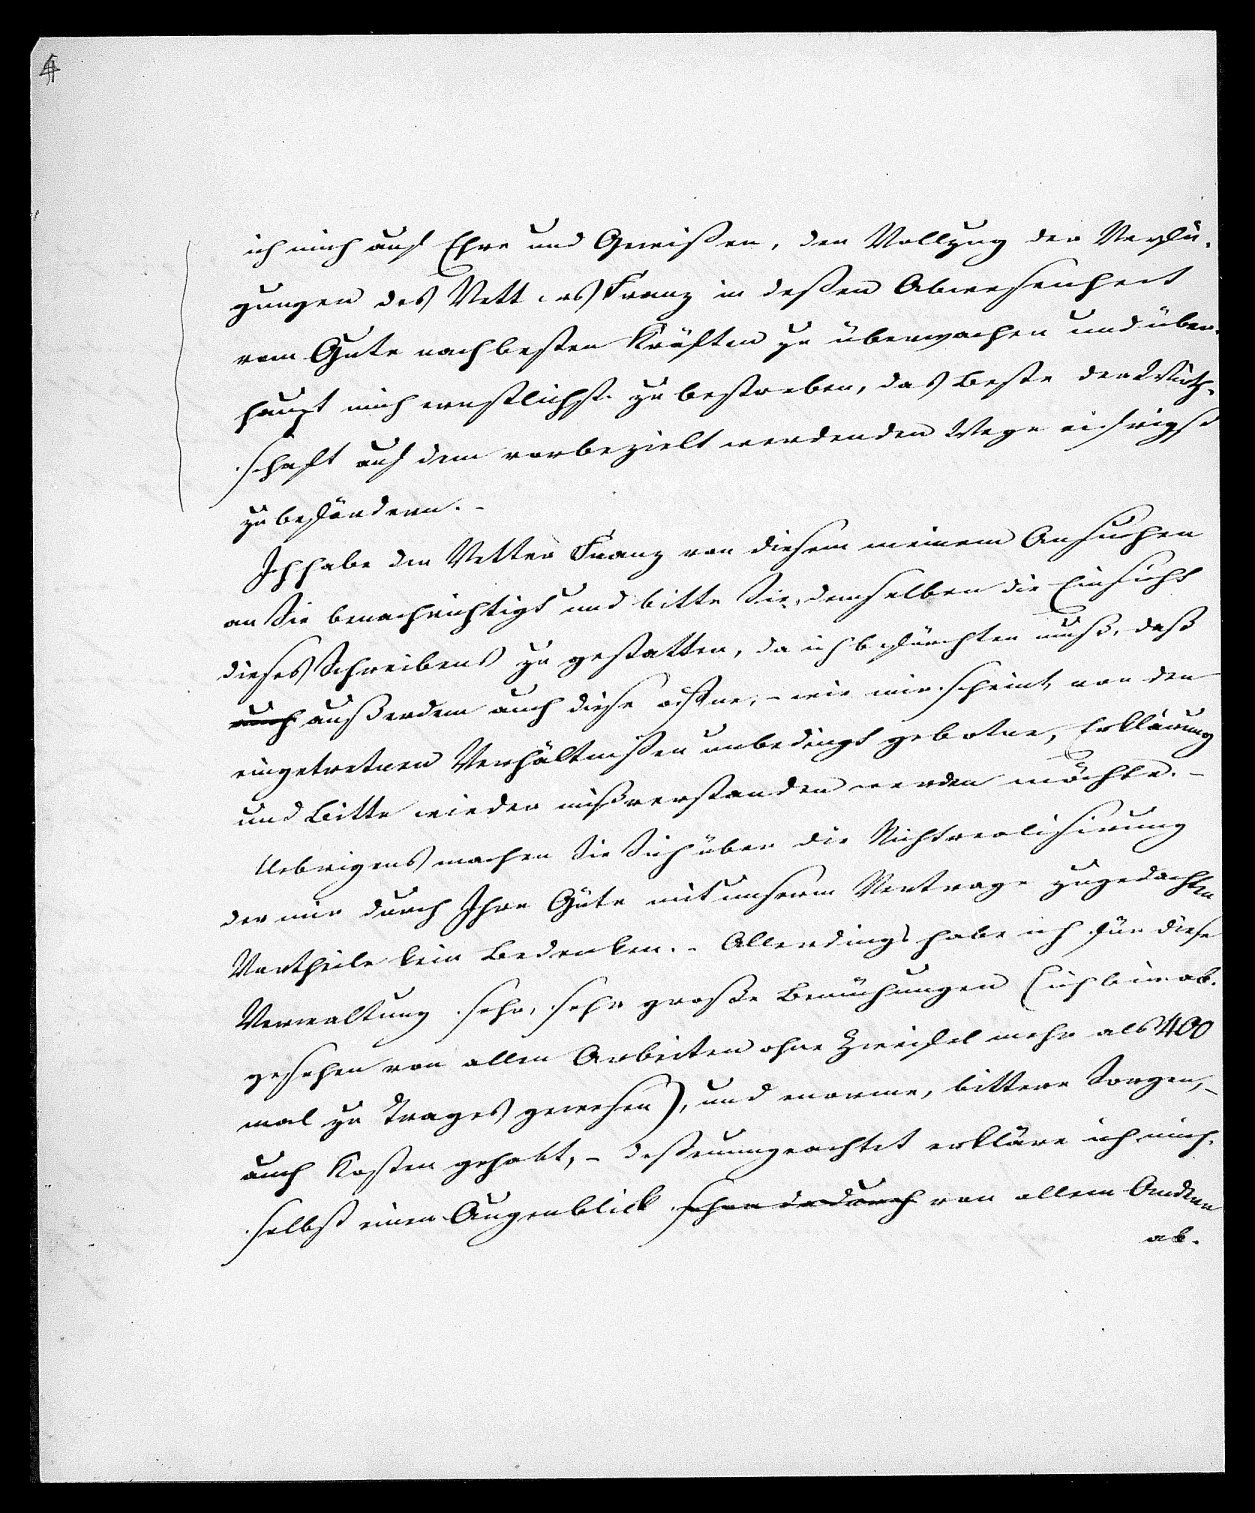 4
ich mich auf Ehre und Gewißen, den Vollzug der Verfü-
gungen des Vett ers Franz in deßen Abwesenheit
vom Gute nach besten Kräften zu überwachen und über-
haupt mich ernstlichst zu bestreben, das Beste der Wirth-
schaft auf dem vorbezielt werdenden Wege eifrigst
zu befördern. -
Ich habe den Vetter Franz von diesem meinem Ansuchen
an Sie benachrichtigt und bitte Sie, demselben die Einsicht
dieses Schreibens zu gestatten, da ich befürchten muß, daß
auch außerdem auch diese offne, - wie mir scheint, von den
eingetretnen Verhältnißen unbedingt gebotne, Erklärung
und Bitte wieder mißverstanden werden möchte. -
Uebrigens machen Sie Sich über die Nichtrealisirung
der mir durch Ihre Güte mit unserm Vertrage zugedachten
Vortheile kein Bedenken. - Allerdings habe ich für diese
Verwaltung sehr, sehr große Bemühungen (ich bin ab-
gesehen von allen Arbeiten ohne Zweifel mehr als 400
mal zu Trages gewesen), und enorme, bittere Sorgen, -
auch Kosten gehabt, - deßenungeachtet erkläre ich mich
selbst einen Augenblick schon dadurch von allem Andern
ab.